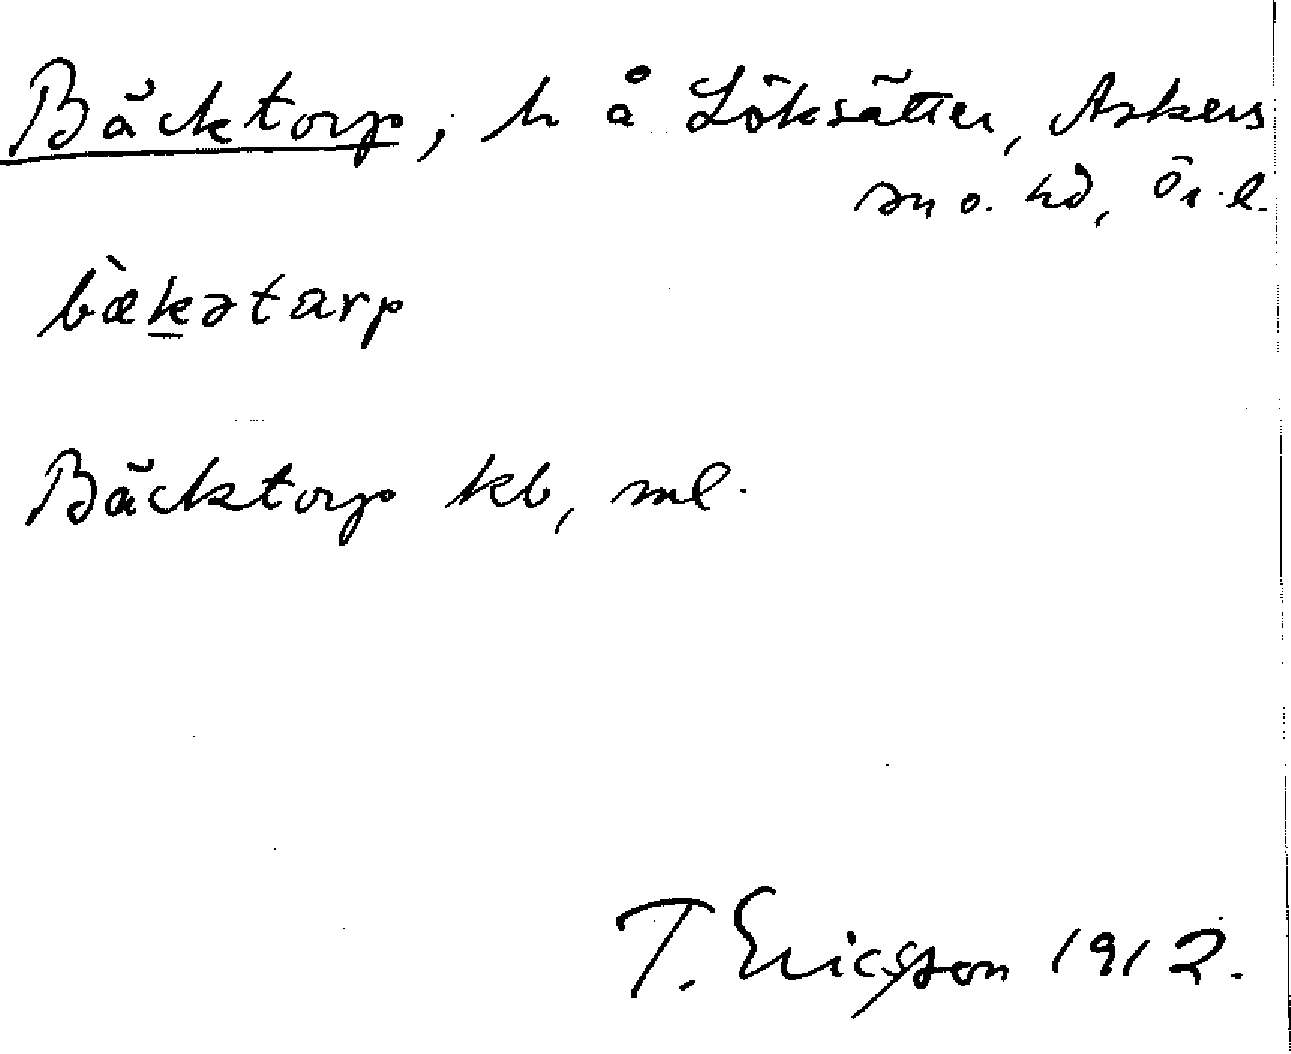 Bäcktorp, h å Löksätter, Askers
sn o. hd, Ör. l.
bæ̀kətarp
Bäcktorp kb, ml.
T. Ericsson 1912.